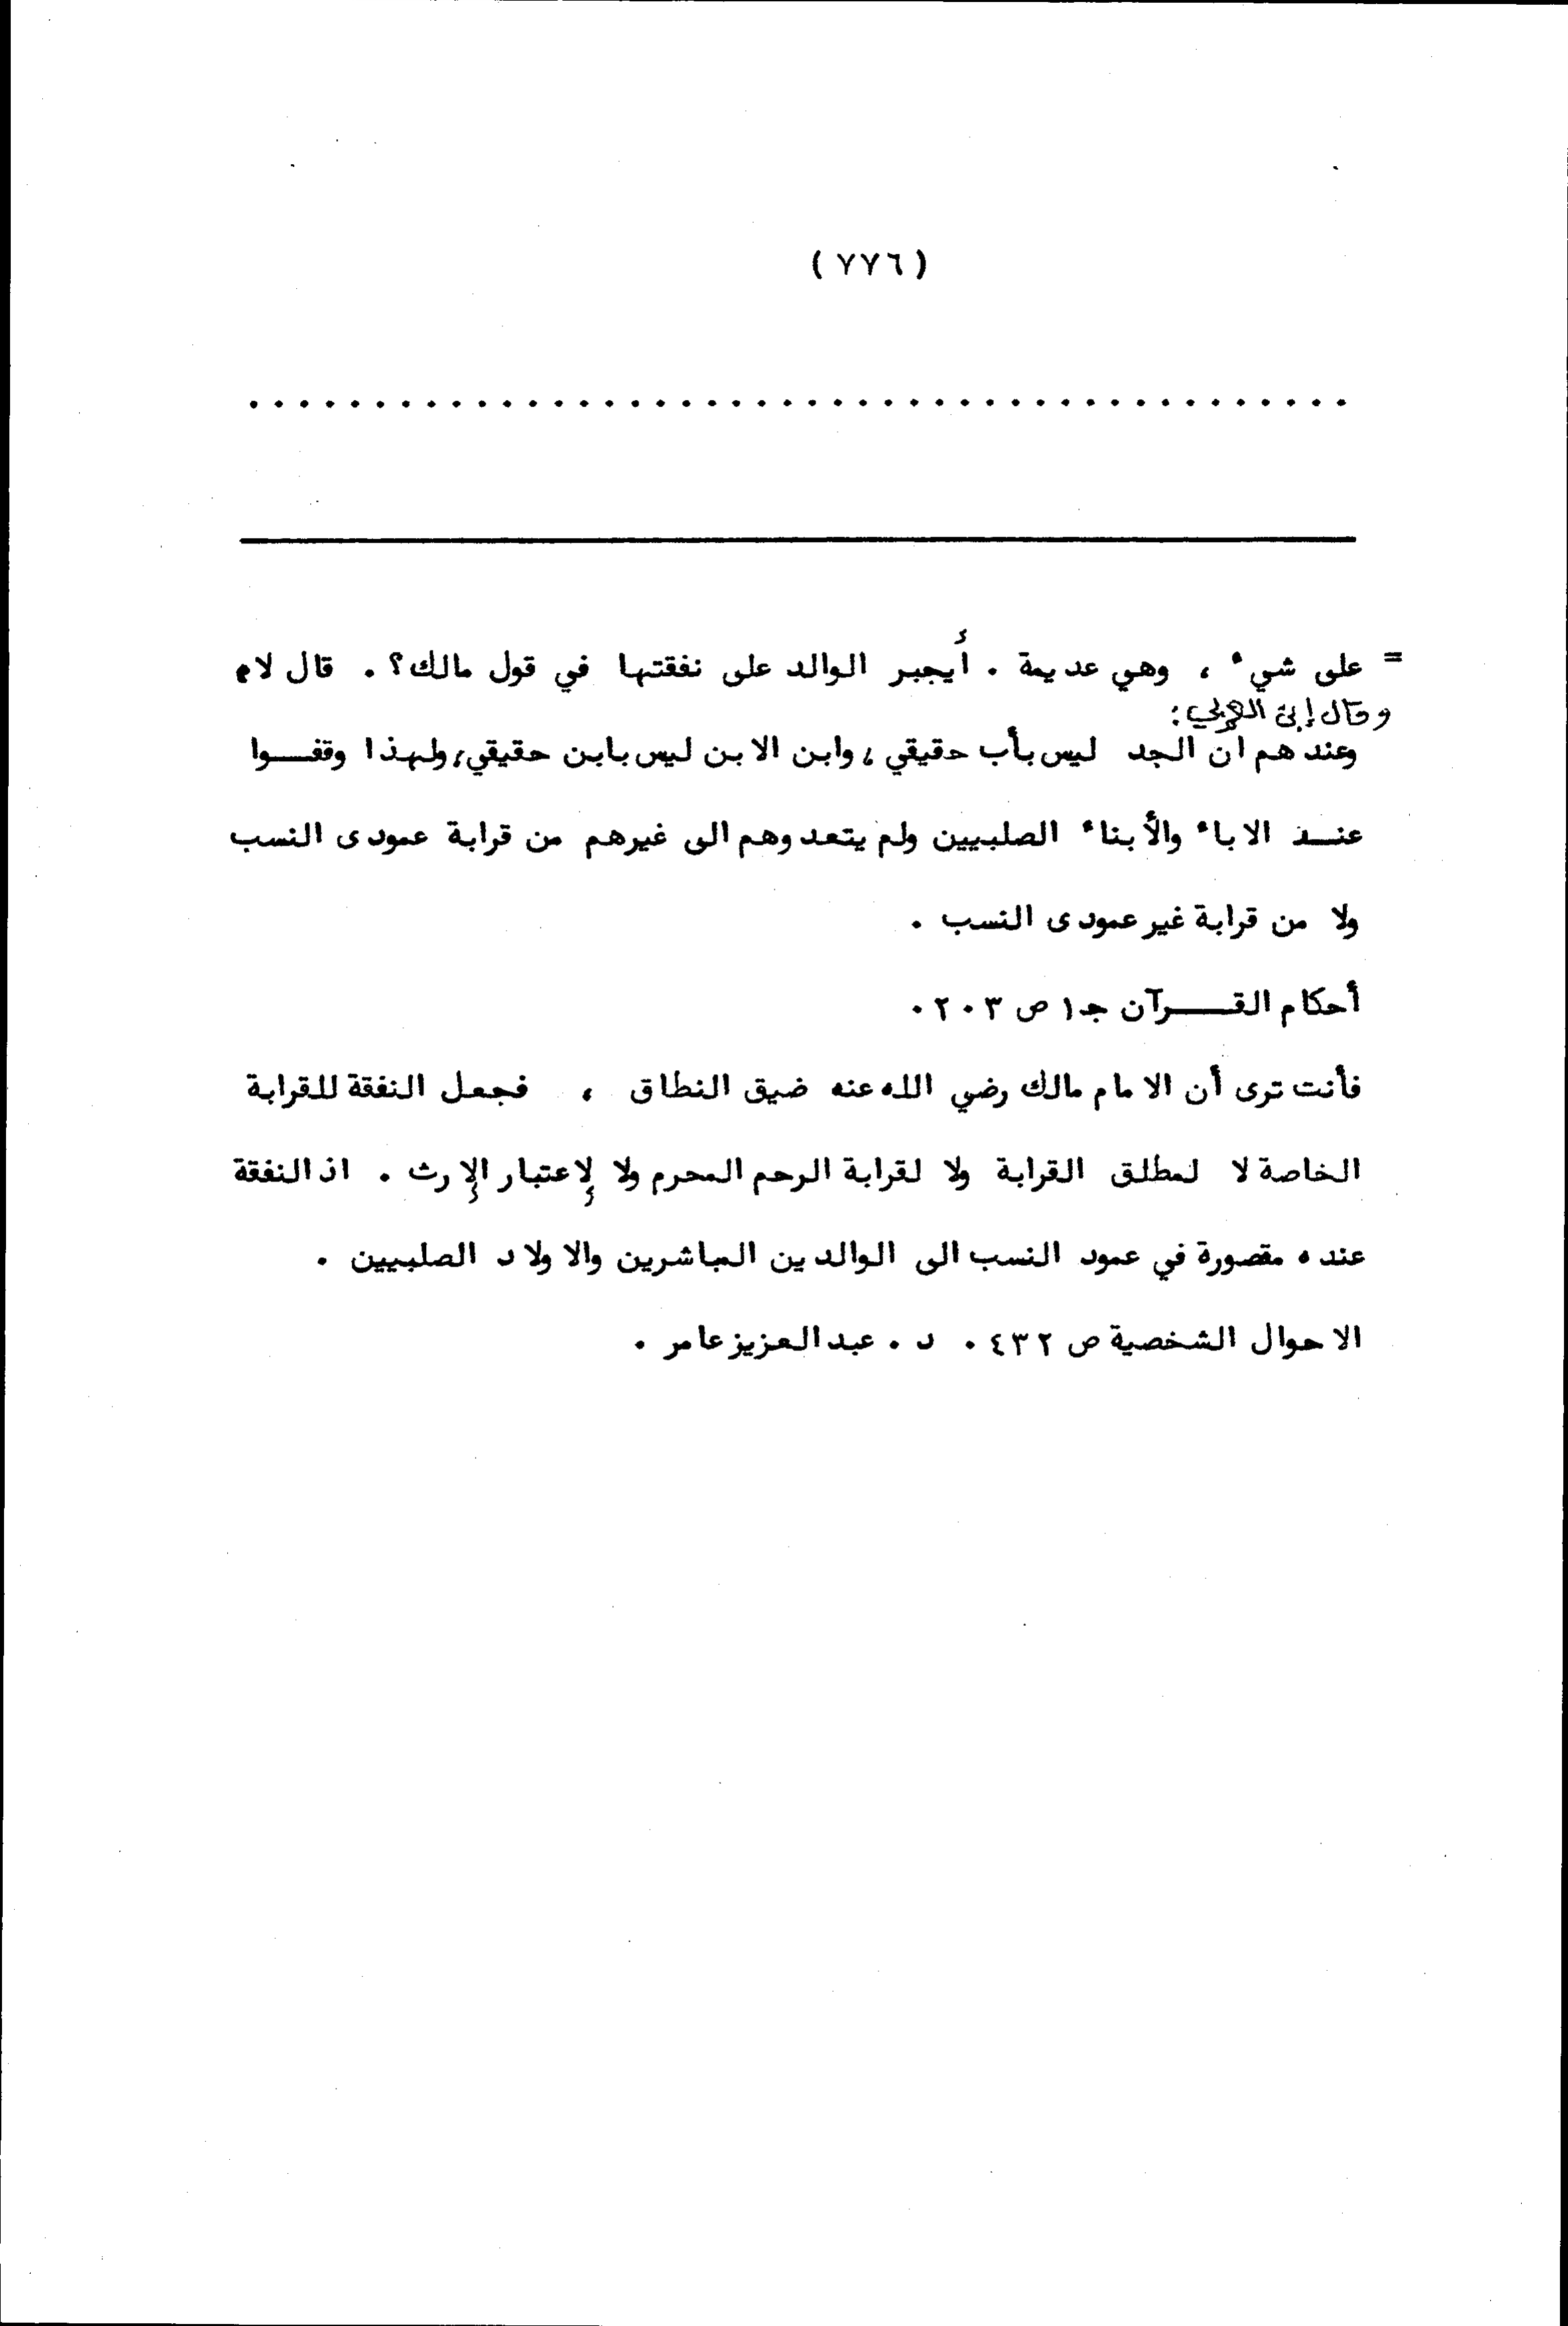 (٧٧٦)
. . . . . . . . . . . . . . . . . . . . . . . . . . . . . . . . . . . . . . . . . . . .
= على شيء ، وهي عديمة . أيجبر الوالد على نفقتها في قول مالك؟ . قال لا م
وقال إبن العربي :
وعندهم ان الجد ليس بأب حقيقي ، وابن الابن ليس بابن حقيقي، ولهذا وقفــوا
عنــد الاباء والأبناء الصلبيين ولم يتعدوهم الى غيرهم من قرابة عمودى النسب
ولا من قرابة غير عمودى النسب .
أحكام القــــرآن جـ١ ص ٢٠٣ .
فأنت ترى أن الامام مالك رضي الله عنه ضيق النطاق ، فجعل النفقة للقرابة
الخاصة لا لمطلق القرابة ولا لقرابة الرحم المحرم ولا لإعتبار الإرث . اذ النفقة
عنده مقصورة في عمود النسب الى الوالدين المباشرين والاولاد الصلبيين .
الاحوال الشخصية ص ٤٣٢ . د . عبد العزيز عامر .